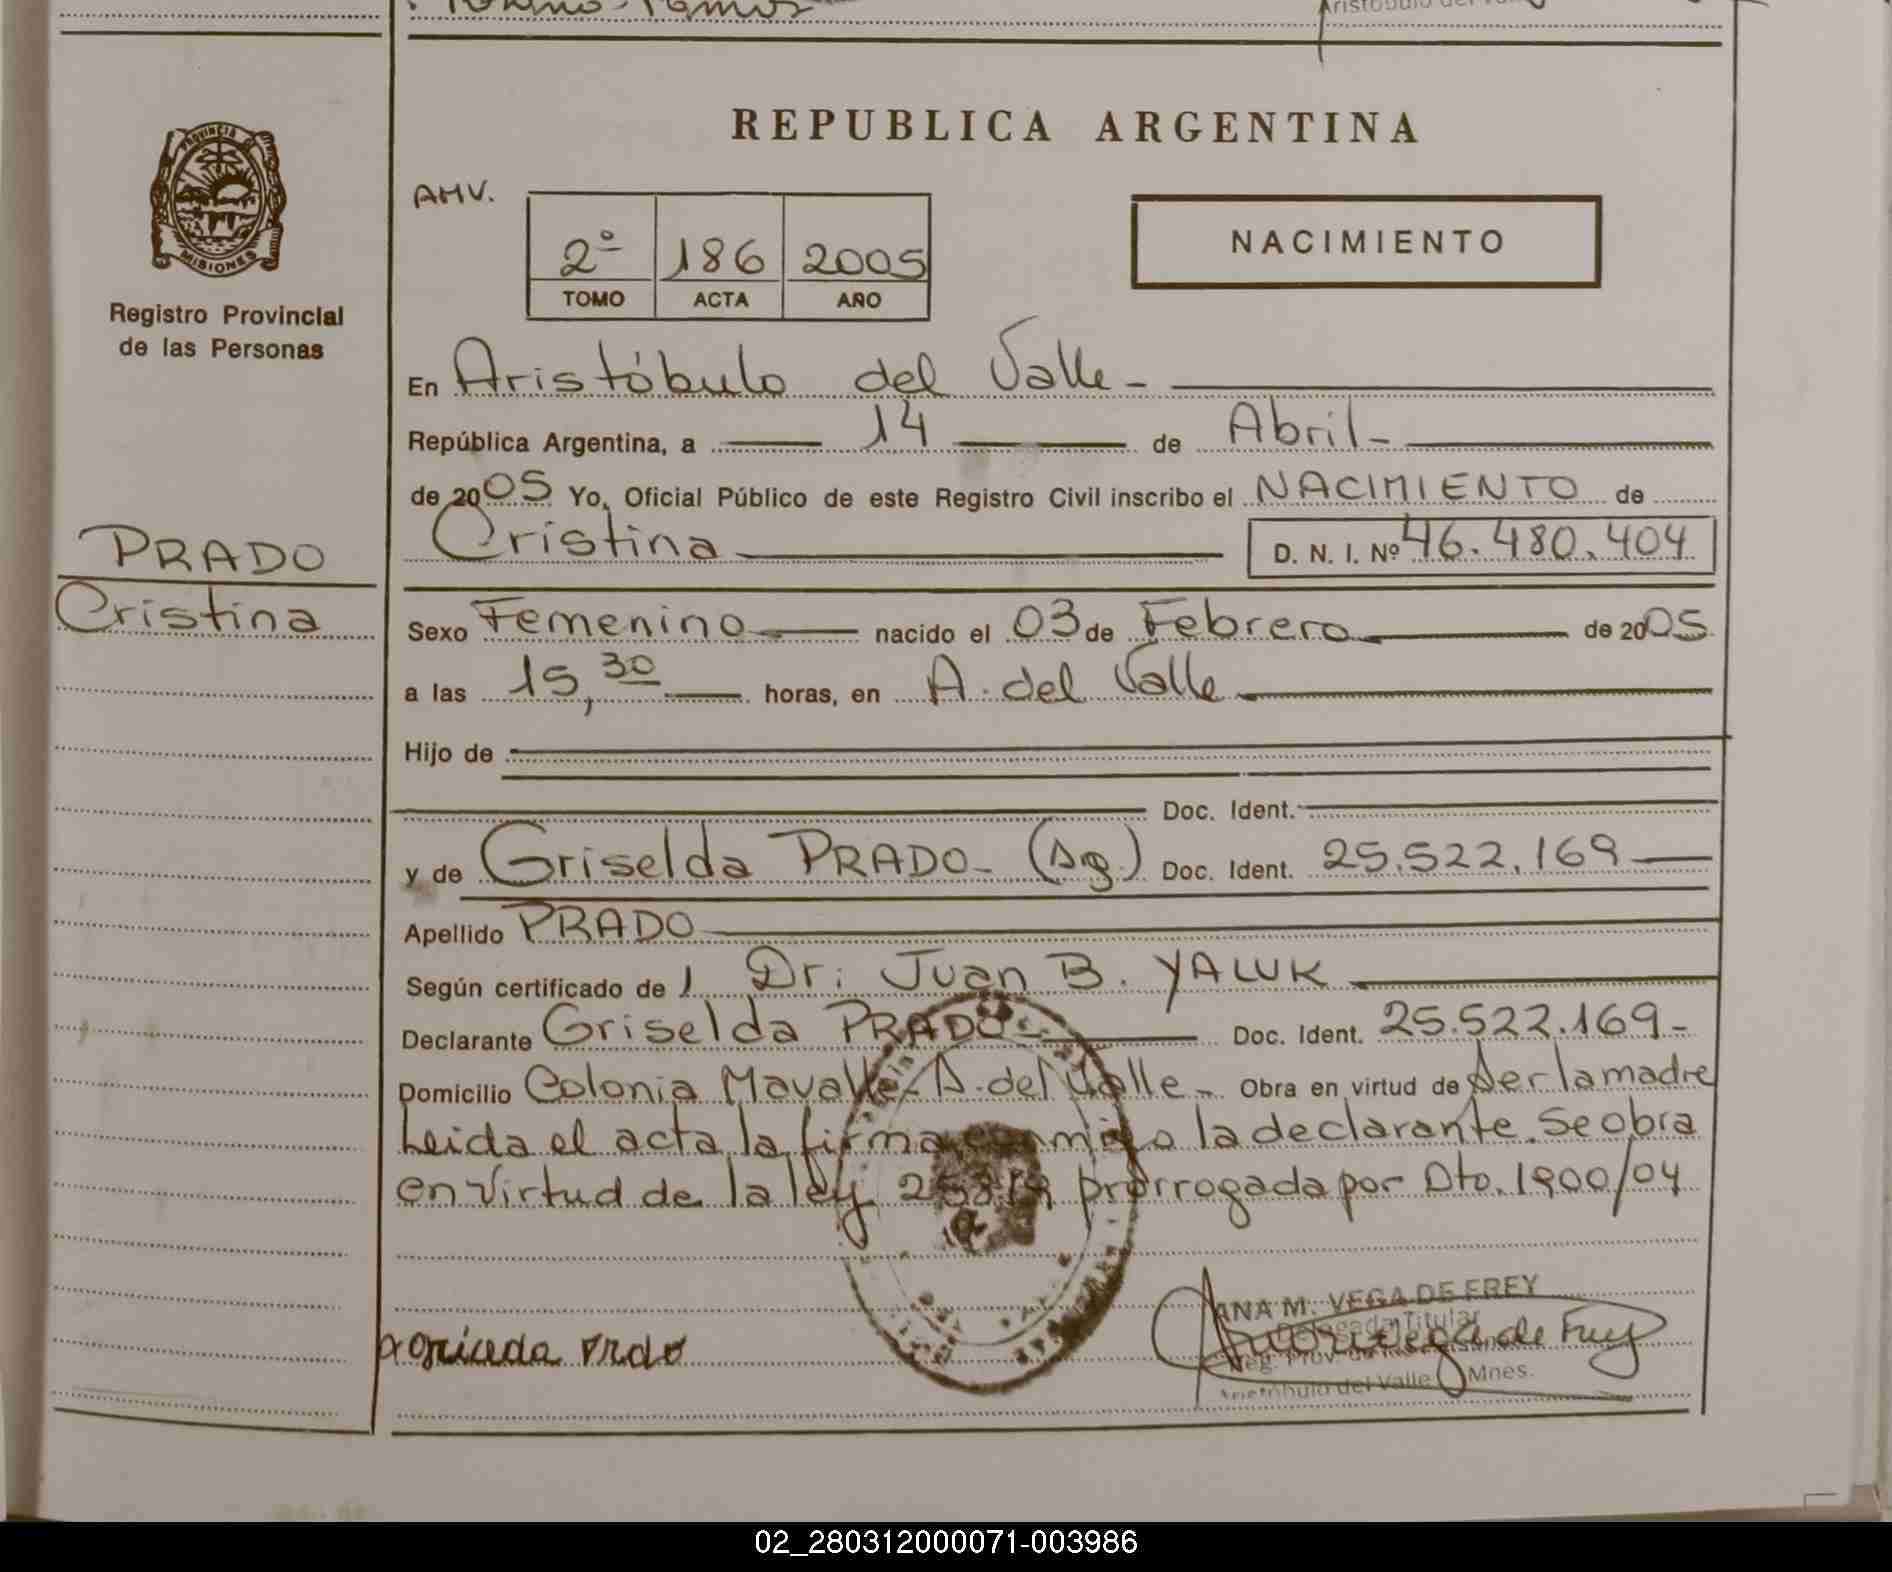 PROVINCIA
MISIONES
Registro Provincial
de las Personas
PRADO
Cristina
REPUBLICA ARGENTINA
AMV.
NACIMIENTO
2º 186 2005
TOMO ACTA AÑO
En Aristóbulo del Valle -
República Argentina, a 14 de Abril -
de 2005 Yo, Oficial Público de este Registro Civil inscribo el NACIMIENTO de
Cristina D. N. I. Nº 46.480.404
Sexo Femenino nacido el 03 de Febrero de 2005
a las 15,30 horas, en A. del Valle
Hijo de
Doc. Ident.
y de Griselda PRADO - (Ag.) Doc. Ident. 25.522.169
Apellido PRADO
Según certificado de 1 Dr: Juan B. YALUK
Declarante Griselda PRADO Doc. Ident. 25.522.169 -
Domicilio Colonia Mavalle - A. del Valle - Obra en virtud de ser la madre
Leida el acta, la firma conmigo la declarante. Se obra
en virtud de la ley 25819 prorrogada por Dto. 1900/04
ANA M. VEGA DE FREY
Delegada Titular
Reg. Prov. de las Personas
Aristóbulo del Valle Mnes.
02_280312000071-003986